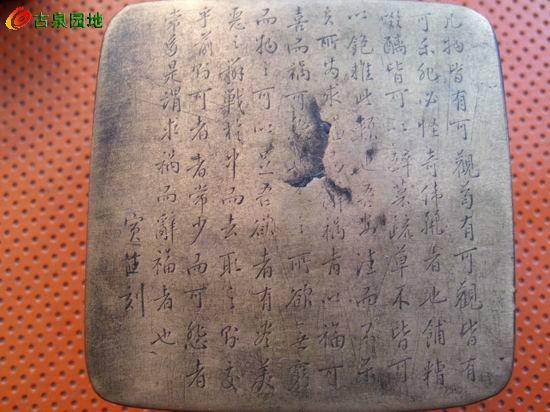 古泉园地
凡物皆有可觀苟有可觀皆有
可樂非必怪奇偉麗者也餔糟
啜醨皆可以醉菜疏草木皆可
以飽推此類也吾安往而不樂
夫所为求福辭禍者以福可
喜而禍可之所欲無窮
而物之可以足吾欲者有盡美
惡之辨戰於中而去取之擇交
乎前則可者常少而可悲者
常多是謂求禍而辭福者也
寅生刻